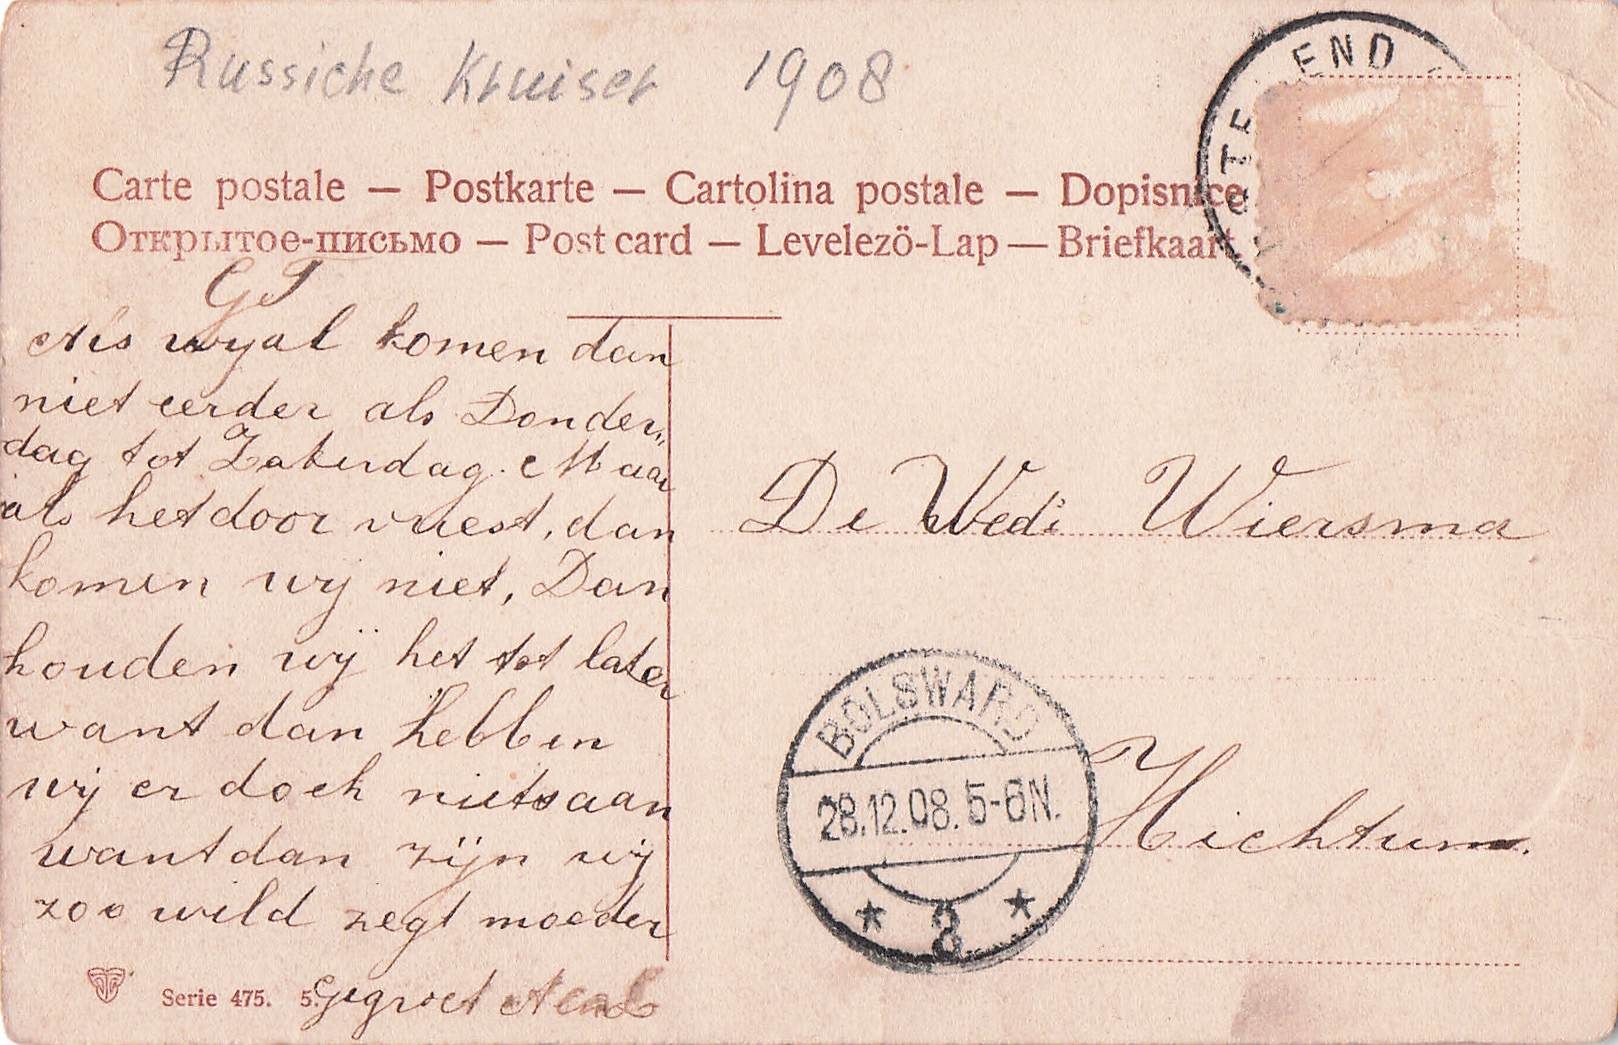 Russiche Kruiser 1908
Carte postale — Postkarte — Cartolina postale — Dopisnice
Открытое-письмо — Post card — Levelezö-Lap — Briefkaart
GT
Als wy al komen dan
niet eerder als Donder„
dag tot Zaterdag. Maar
als het door vriest, dan
komen wy niet, Dan
houden wÿ het tot later
want dan hebben
wij er doch niets aan
want dan zijn wij
zoo wild zegt moeder
Gegroet
Serie 475. 5.
De Wedi Wiersma
Hichtum.
BOLSWARD
28.12.08. 5-6N.
* 3 *
END